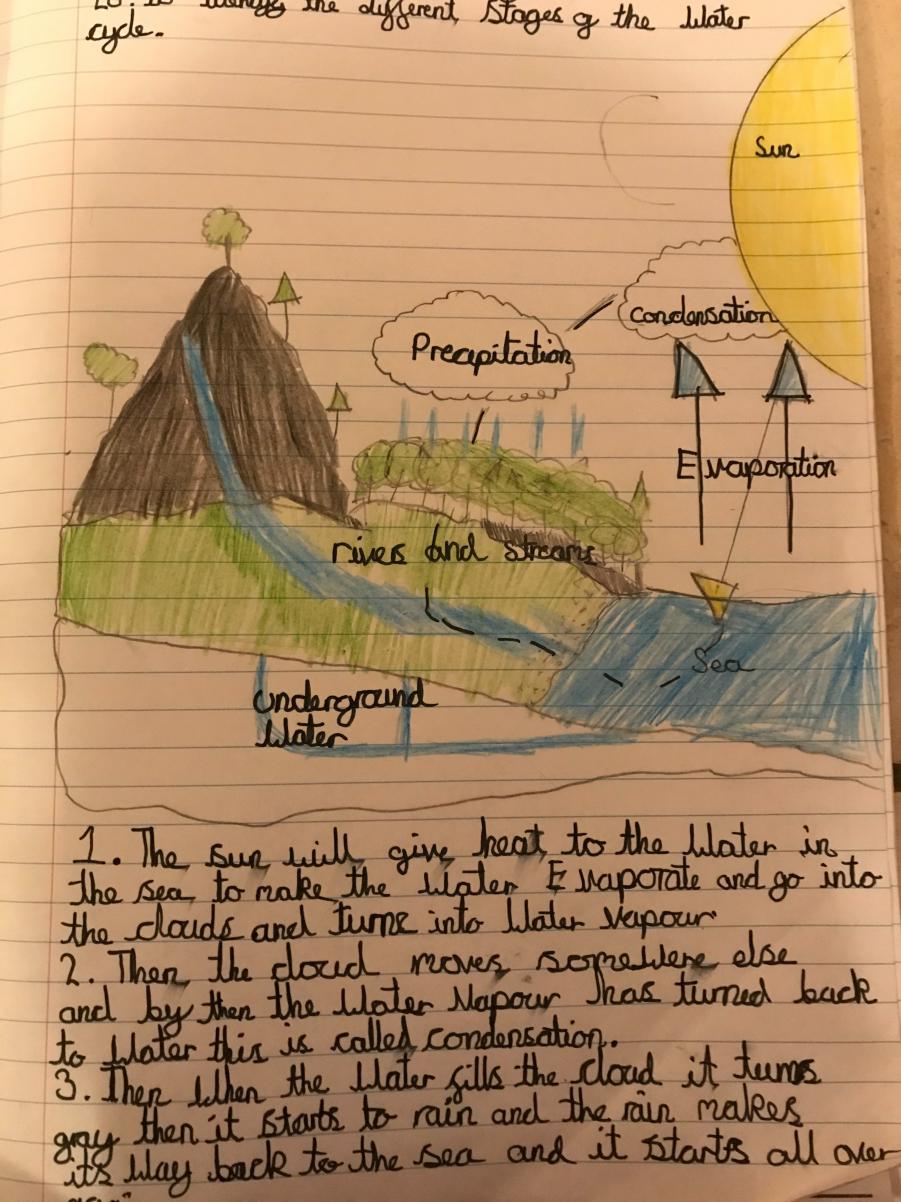 the different stages of the Water
cycle.
Sun
Condensation
Precapitation
Evaporation
rivers and streams
Sea
Underground
Water
1. The sun will give heat to the Water in
the sea to make the Water Evaporate and go into
the clouds and turns into Water Vapour
2. Then the cloud moves somewere else
and by then the Water Vapour has turned back
to Water this is called condensation.
3. Then When the Water fills the cloud it turns
gray then it starts to rain and the rain makes
its Way back to the sea and it starts all over